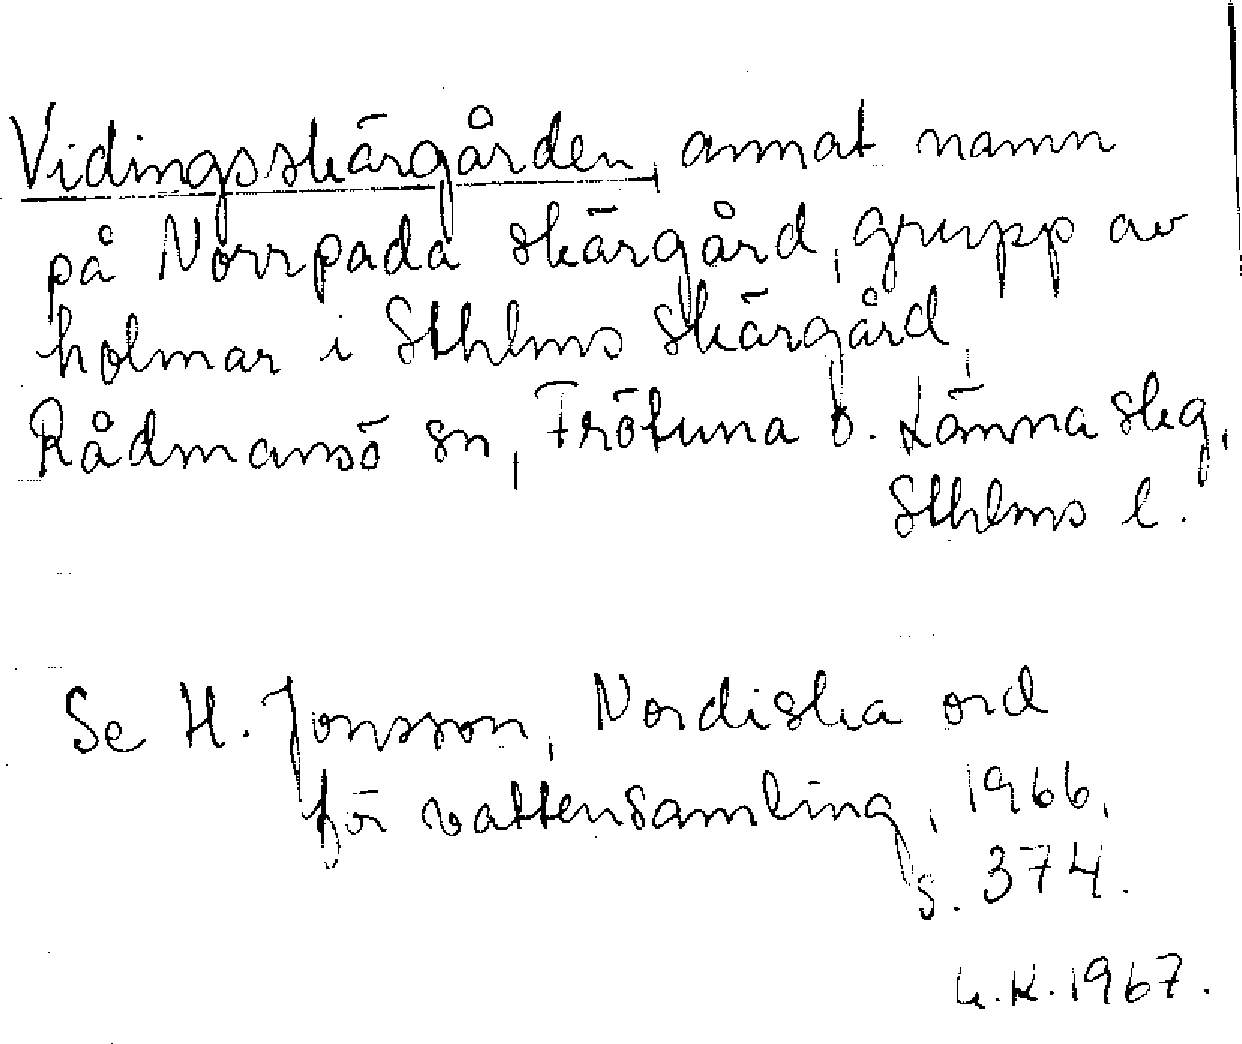 Vidingsskärgården, annat namn
på Norrpada skärgård, grupp av
holmar i Sthlms skärgård,
Rådmansö sn, Frötuna o. Länna skg,
Sthlms l.
Se H. Jonsson, Nordiska ord
för vattensamling, 1966,
s. 374.
K. 1967.